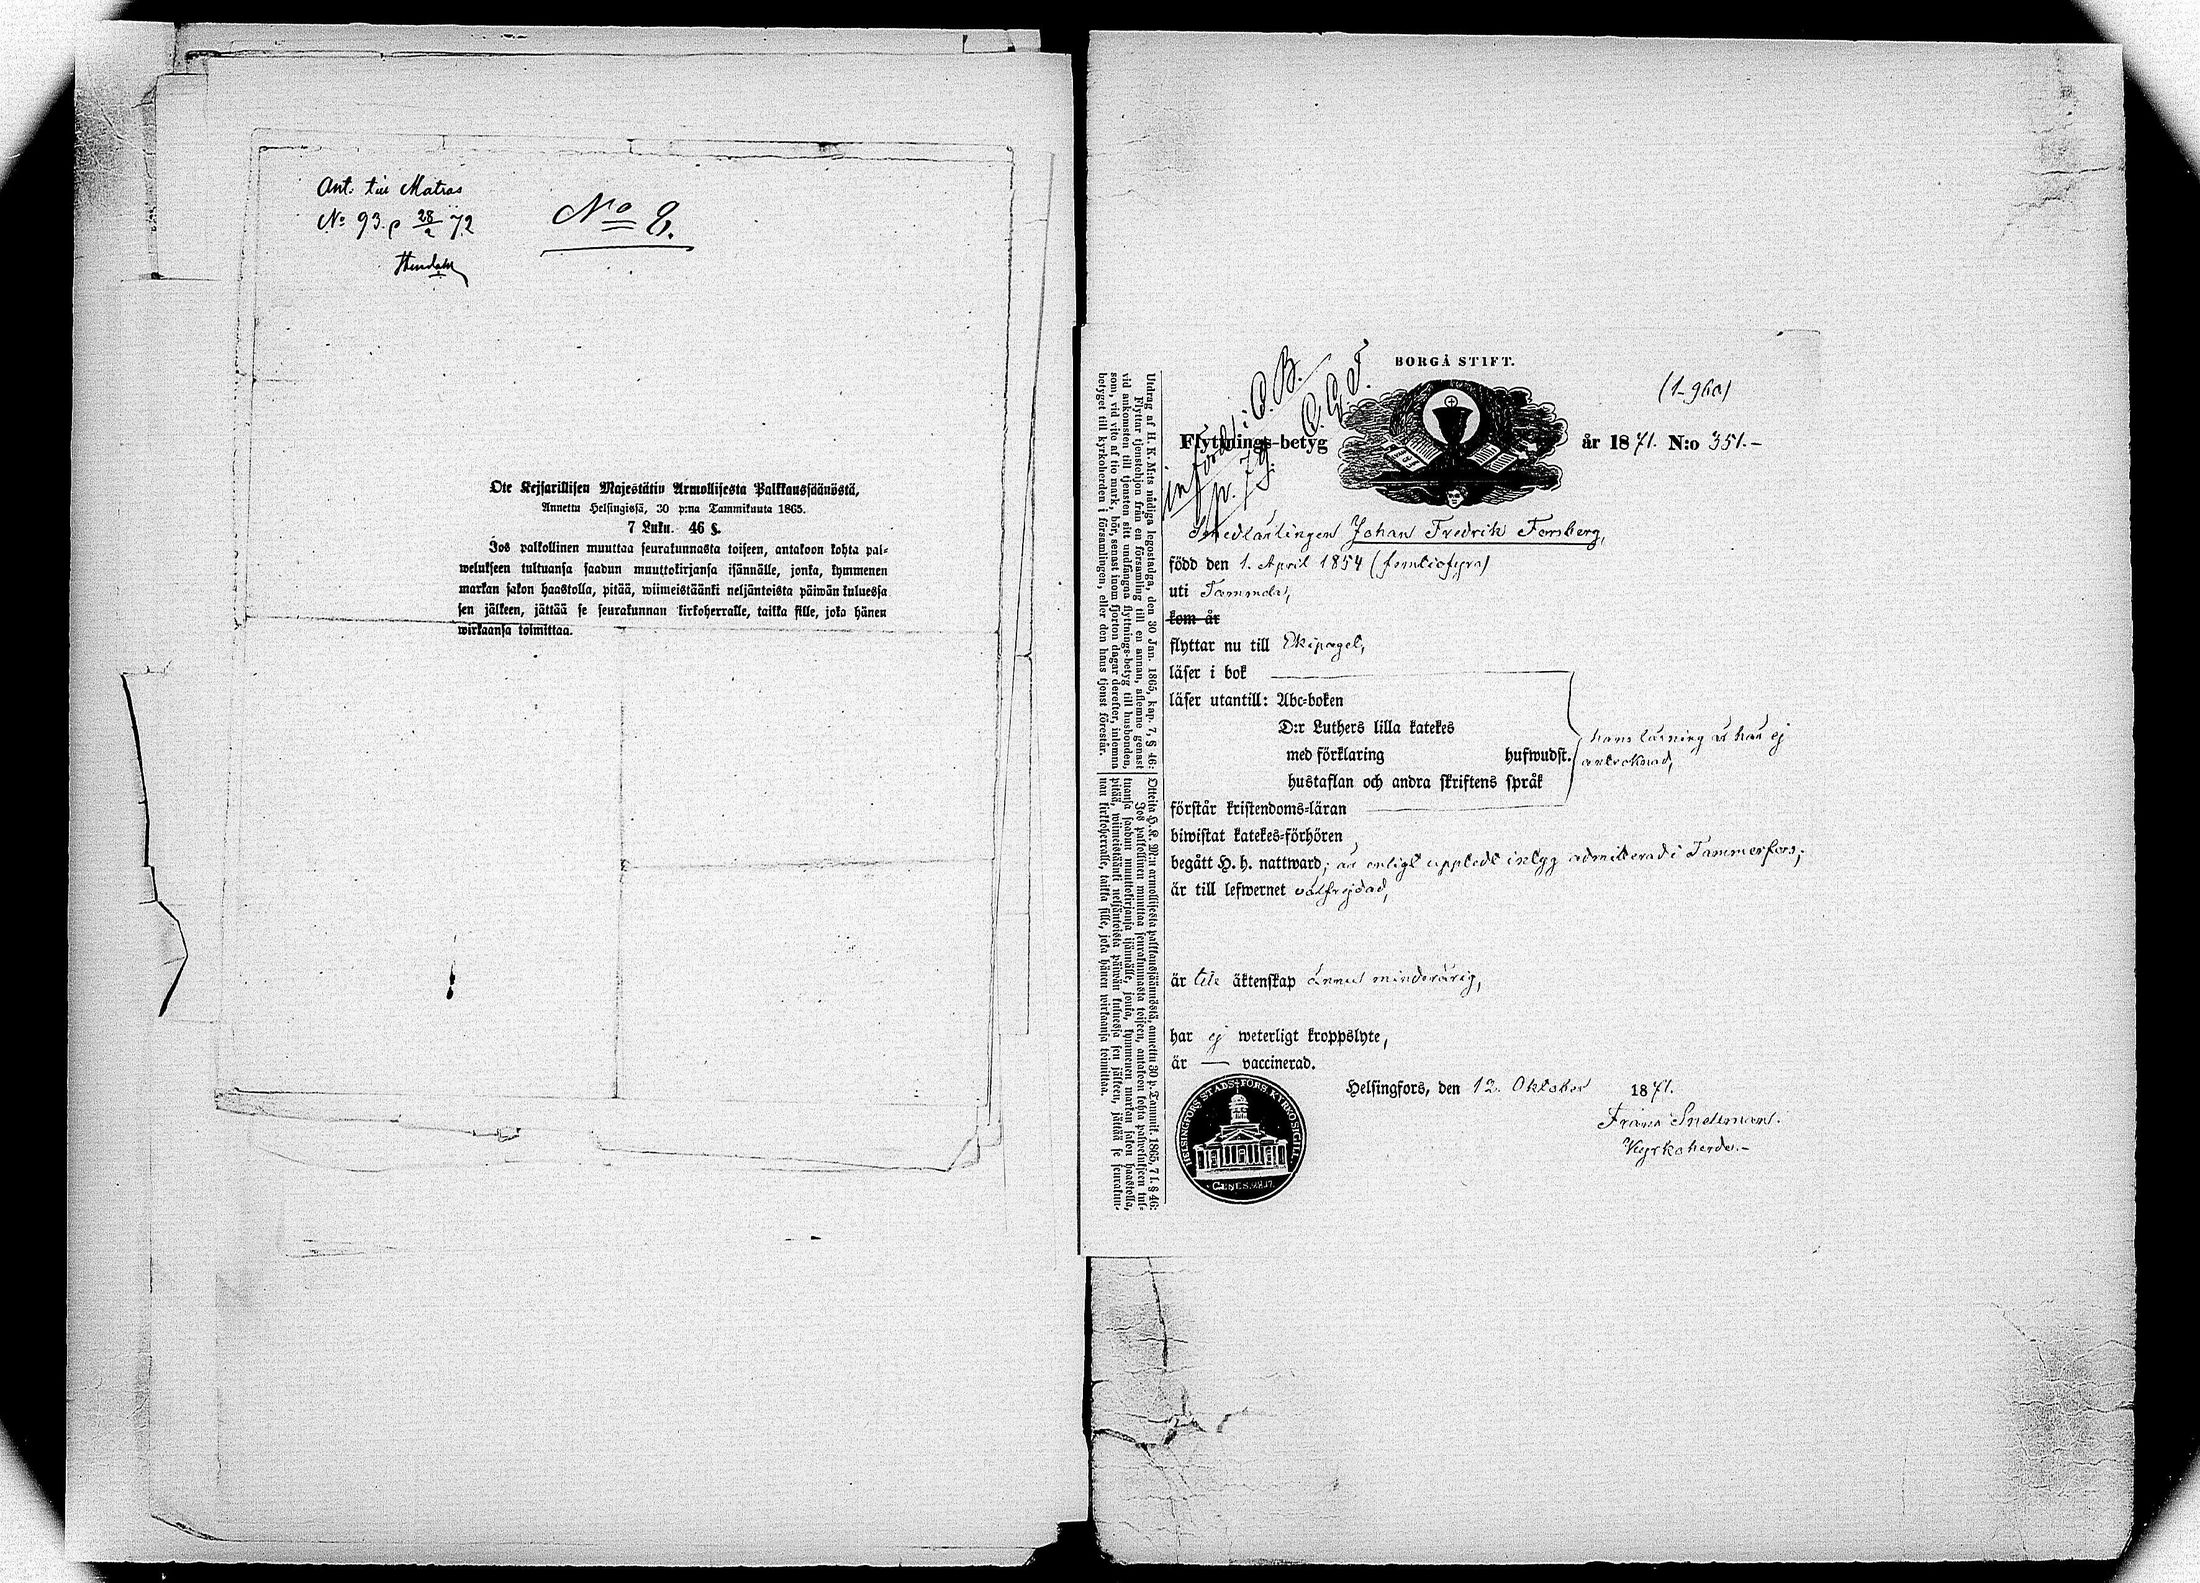 Ant. till Matras
No 93. p 28/2 72
No 8.
Ote Keisarillisen Majestätin Armollisesta Palkkaussäänöstä,
Annettu Helsingissä, 30 p:na Tammikuuta 1865.
7 Luku. 46 §.
Jos palkollinen muuttaa seurakunnasta toiseen, antakoon kohta pal-
welukseen tultuansa saadun muuttokirjansa isännälle, jonka, kymmenen
markan sakon haastolla, pitää, wiimeistäänki neljäntoista päiwän kuluessa
sen jälkeen, jättää se seurakunnan kirkoherralle, taikka sille, joka hänen
wirkaansa toimittaa.
Utdrag af H. K. M:ts nådiga legostadga, den 30 Jan. 1865, kap. 7, § 46:
Flyttar tjenstehjon från en församling till en annan, aflemne genast
vid ankomsten till tjensten sitt undfångna flyttnings-betyg till husbonden,
som, vid vite af tio mark, bör, senast inom fjorton dagar derefter, inlemna
betyget till kyrkoherden i församlingen, eller den hans tjenst förestår.
Otteita H. K. M:n armollisesta palkkaussäännöstä, annettu 30 p. Tammik. 1865, 7 l. § 46:
Jos palkollinen muuttaa seurakunnasta toiseen, antakoon kohta palwelukseen tul-
tuansa saadun muuttokirjansa isännälle, jonka, kymmenen markan sakon haastolla,
pitää, wiimeistäänki neljäntoista päiwän kuluessa sen jälkeen, jättää se seurakun-
nan kirkoherralle, taikka sille, joka hänen wirkaansa toimittaa.
införd i C. B.
p. 79.
C. G. F.
BORGÅ STIFT.
(1-960)
Flyttnings-betyg år 1871. N:o 351.-
Smedlärlingen Johan Fredrik Forsberg,
född den 1. April 1854 (femtiofyra)
uti Tammela,
kom år
flyttar nu till Ekipaget,
läser i bok
läser utantill: Abc-boken
D:r Luthers lilla katekes
med förklaring hufwudst.
hustaflan och andra skriftens språk
hans läsning är här ej
antecknad,
förstår kristendoms-läran
biwistat katekes-förhören
begått H. h. nattward; är enligt uppledt intyg admitterad i Tammerfors;
är till lefwernet välfrejdad,
är till äktenskap ännu minderårig,
har ej weterligt kroppslyte,
är — vaccinerad.
Helsingfors, den 12. Oktober 1871.
Frans Snellman.
Kyrkoherde.-
HELSINGFORS STADS-FÖRS. KYRKOSIGILL.